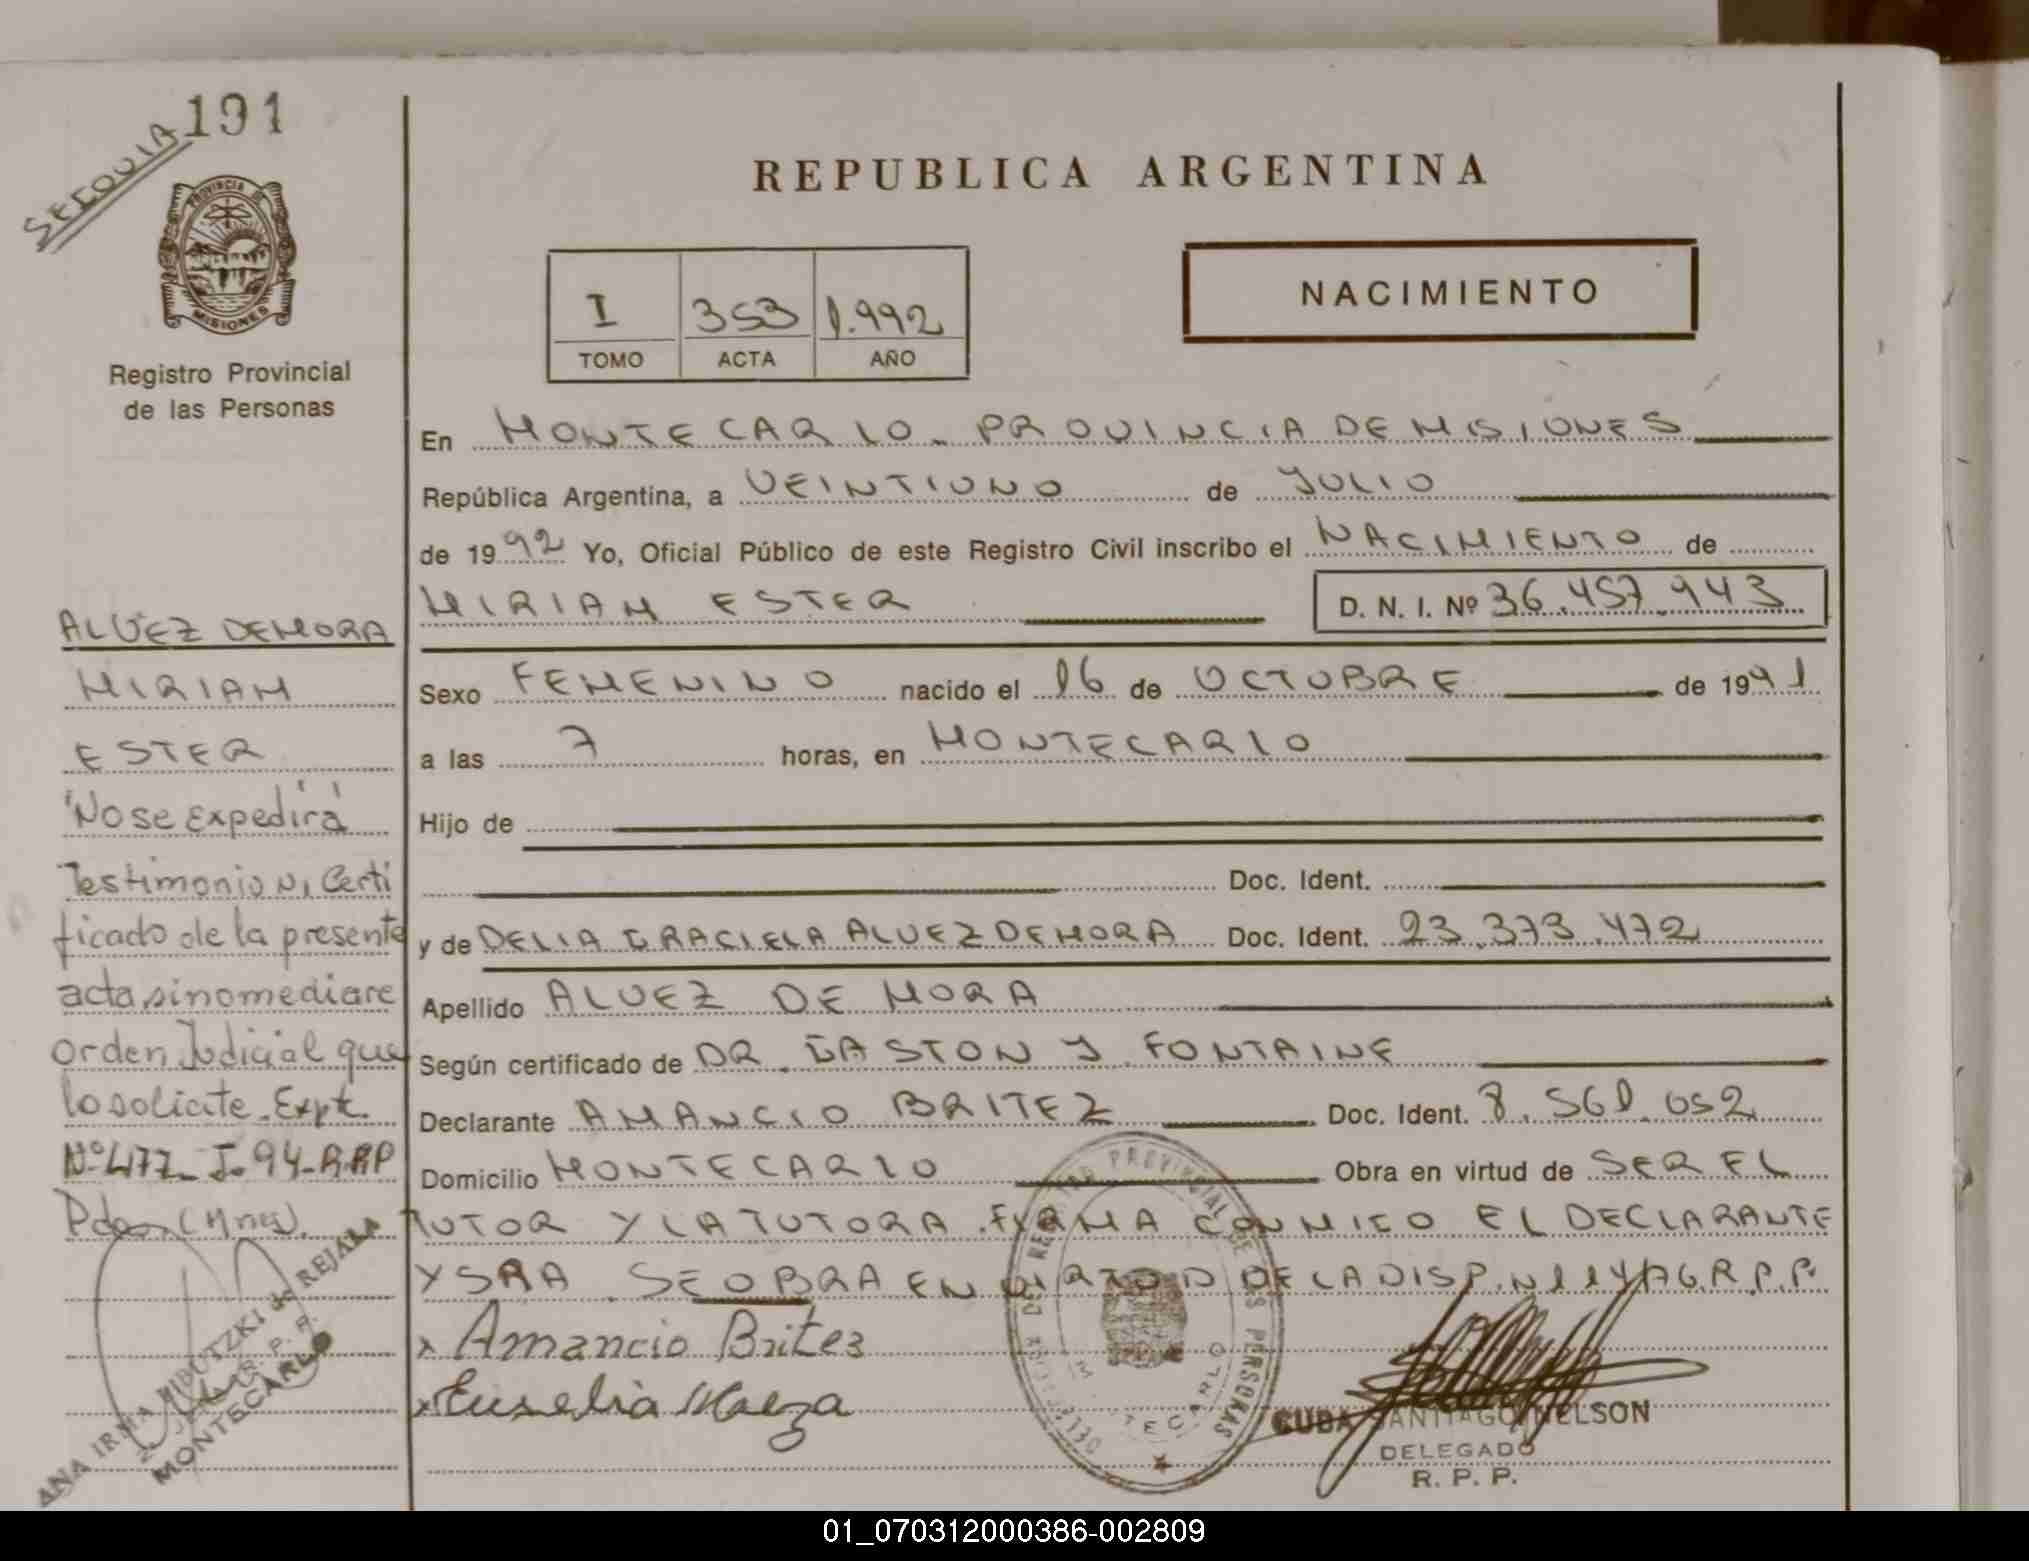 191
SEGOVIA
PROVINCIA DE
MISIONES
Registro Provincial
de las Personas
REPUBLICA ARGENTINA
NACIMIENTO
I 353 1.992
TOMO ACTA AÑO
En MONTECARLO - PROVINCIA DE MISIONES
República Argentina, a VEINTIUNO de JULIO
de 1992 Yo, Oficial Público de este Registro Civil inscribo el NACIMIENTO de
MIRIAM ESTER D. N. I. Nº 36.457.943
Sexo FEMENINO nacido el 16 de OCTUBRE de 1991
a las 7 horas, en MONTECARLO
Hijo de
Doc. Ident.
y de DELIA GRACIELA ALVEZ DEMORA Doc. Ident. 23.373.472
Apellido ALVEZ DE MORA
Según certificado de DR. GASTON J. FONTAINE
Declarante AMANCIO BRITEZ Doc. Ident. 8.561.052
Domicilio MONTECARLO Obra en virtud de SER EL
TUTOR Y LA TUTORA. FIRMA CONMIGO EL DECLARANTE
Y SRA. SE OBRA EN VIRTUD DE LA DISP. Nº G.R.P.P.
x Amancio Britez
x Eusebia Maeza
ALVEZ DEMORA
MIRIAM
ESTER
"No se expedirá
Testimonio ni Certi
ficado de la presente
acta, si no mediare
Orden Judicial que
lo solicite. Expt.
Nº 477- J-94-RPP
Pdas (Mnes).
ANA IRMA de REJALA
R. P. P.
MONTECARLO
DELEGACION DEL REGISTRO PROVINCIAL DE LAS PERSONAS
MONTECARLO
CUBA SANTIAGO NELSON
DELEGADO
R. P. P.
01_070312000386-002809